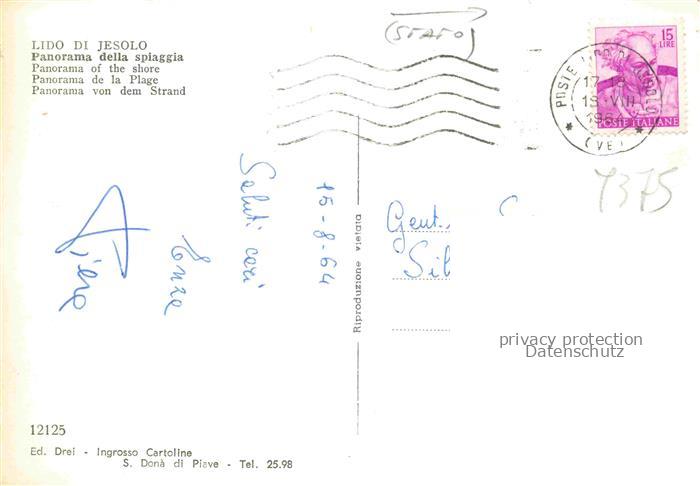 LIDO DI JESOLO
Panorama della spiaggia
Panorama of the shore
Panorama de la Plage
Panorama von dem Strand
15
LIRE
POSTE ITALIANE
POSTE LIDO DI JESOLO
(VE)
7375
15-8-64
Saluti cari
Piero
Gent.
Sil
Riproduzione vietata
privacy protection
Datenschutz
12125
Ed. Drei - Ingrosso Cartoline
S. Donà di Piave - Tel. 25.98